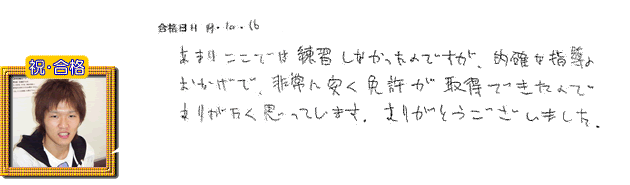 合格日 H 19.10.16
祝・合格
あまりここでは練習しなかったのですが、的確な指導の
おかげで、非常に安く免許が取得できたので
ありがたく思っています。ありがとうございました。